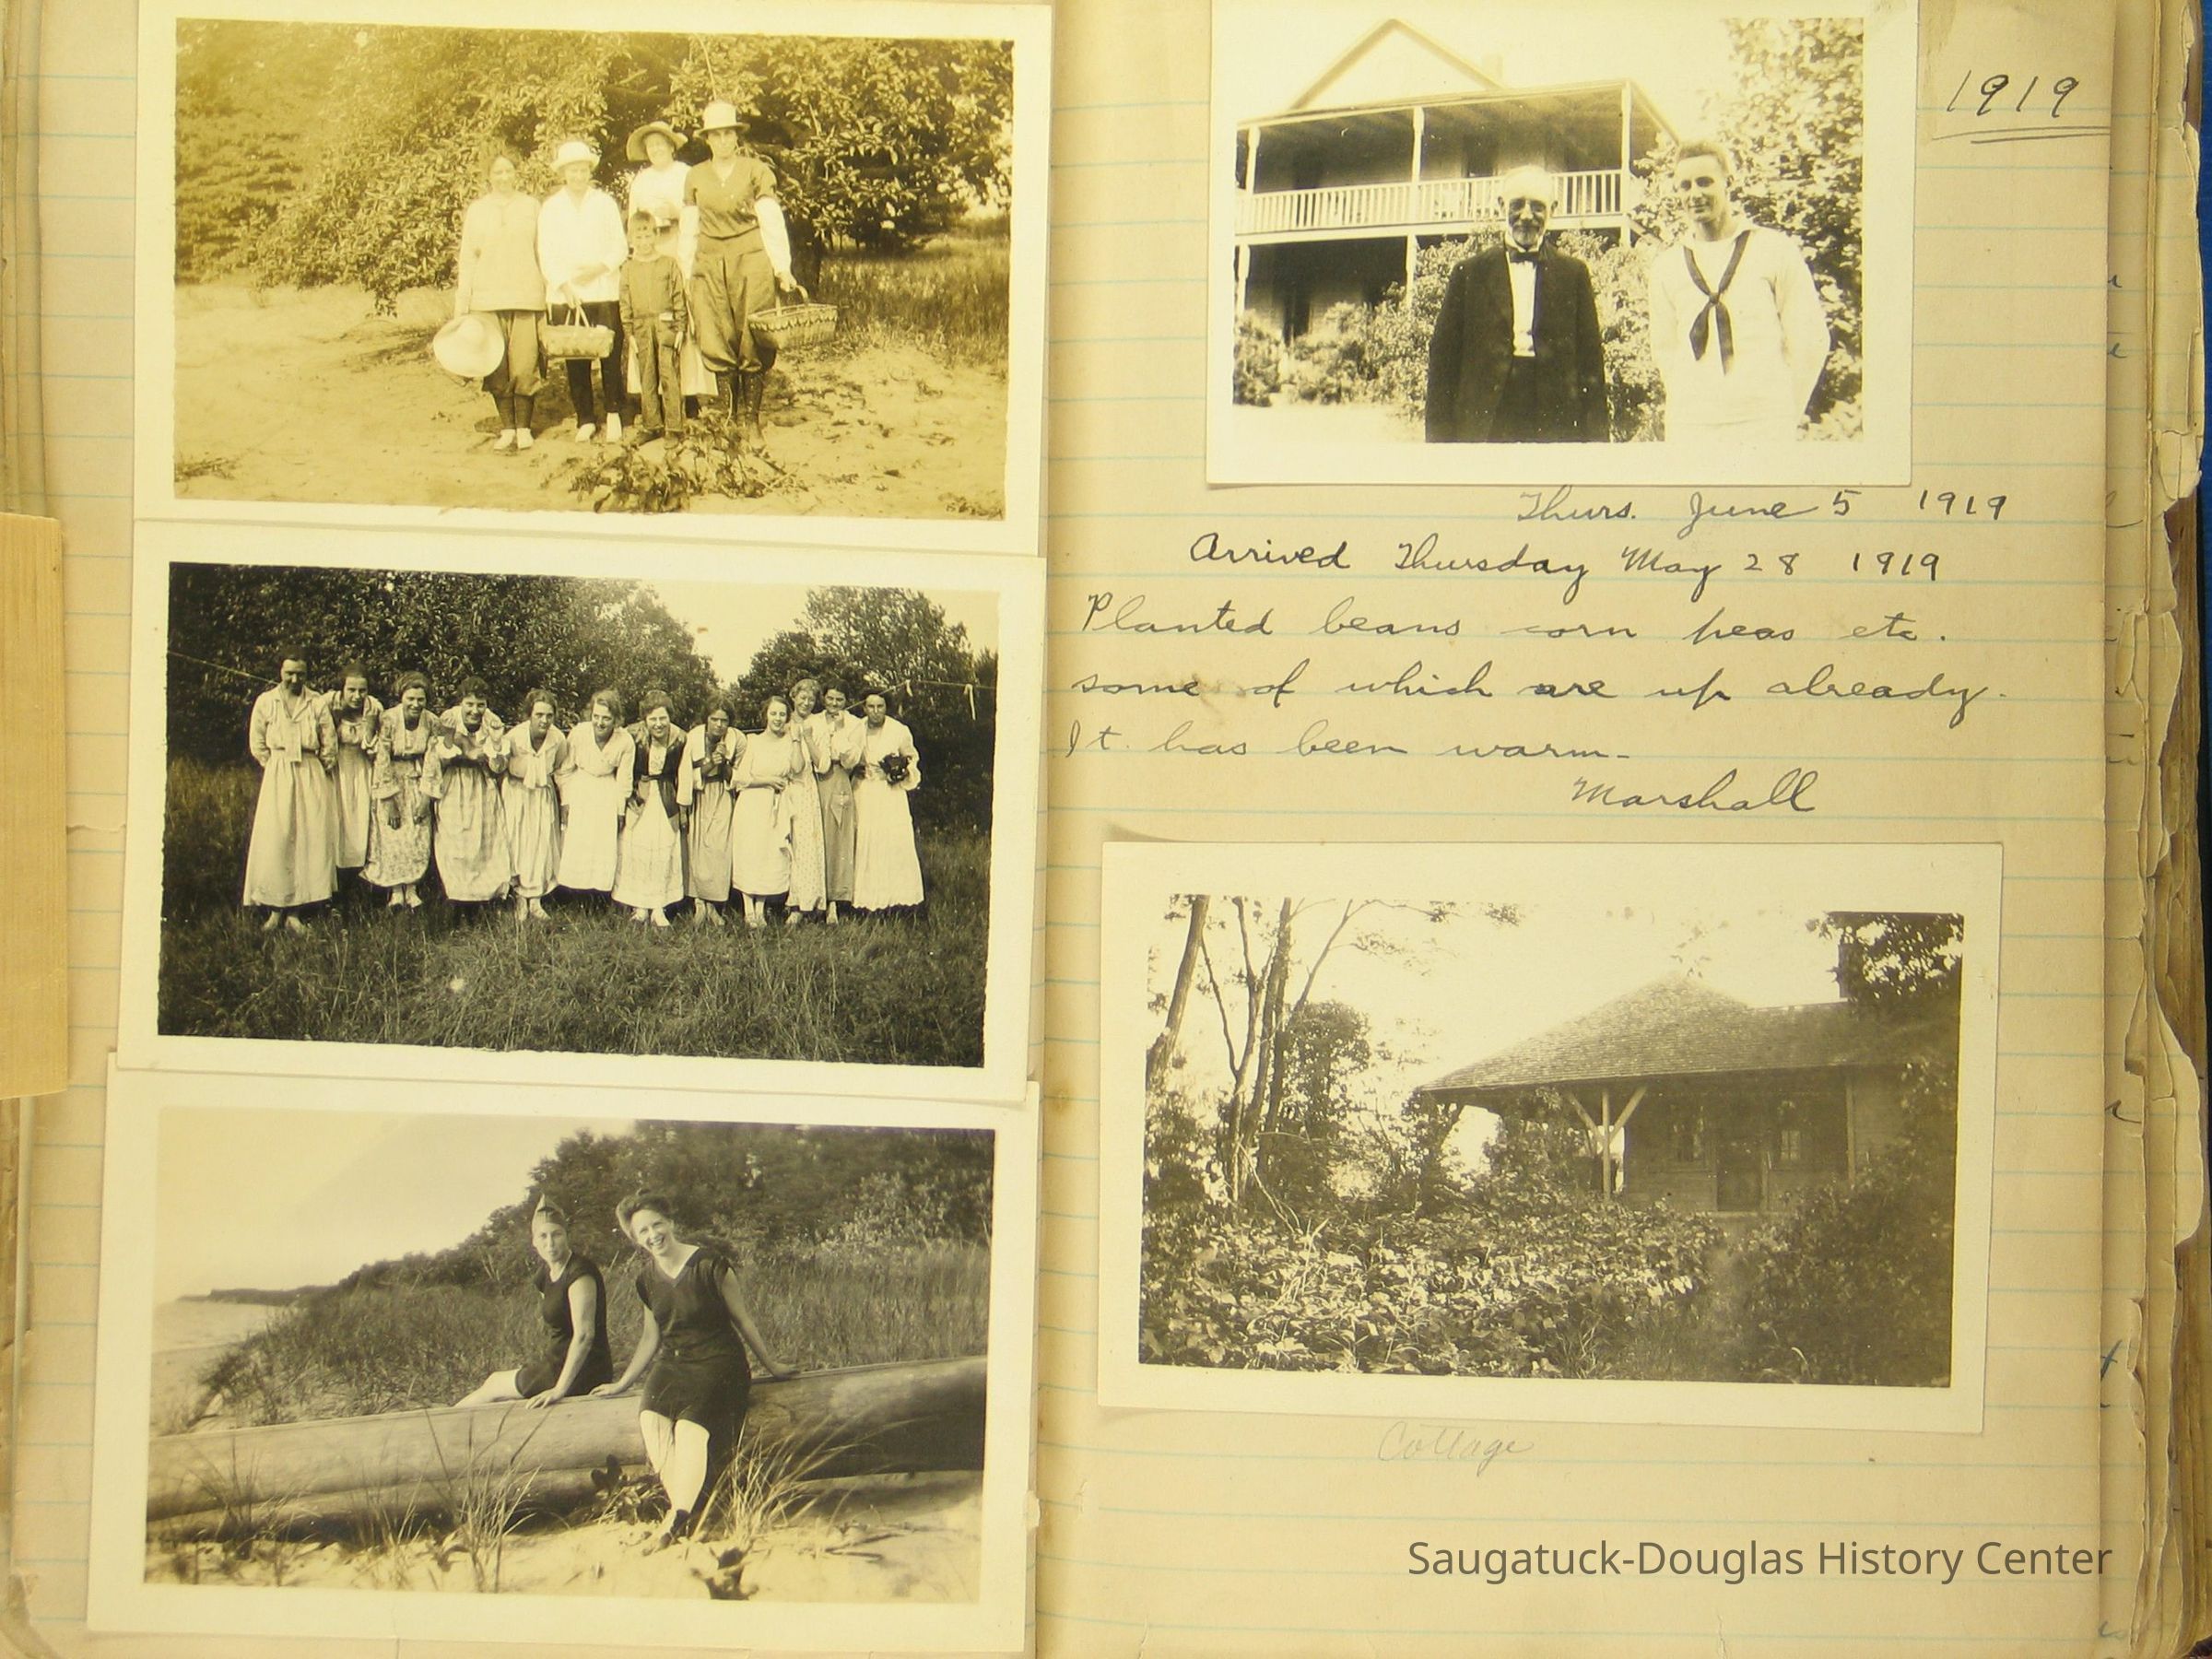 1919
Thurs. June 5 1919
Arrived Thursday May 28 1919
Planted beans corn peas etc.
some of which are up already.
It has been warm-
Marshall
Cottage
Saugatuck-Douglas History Center